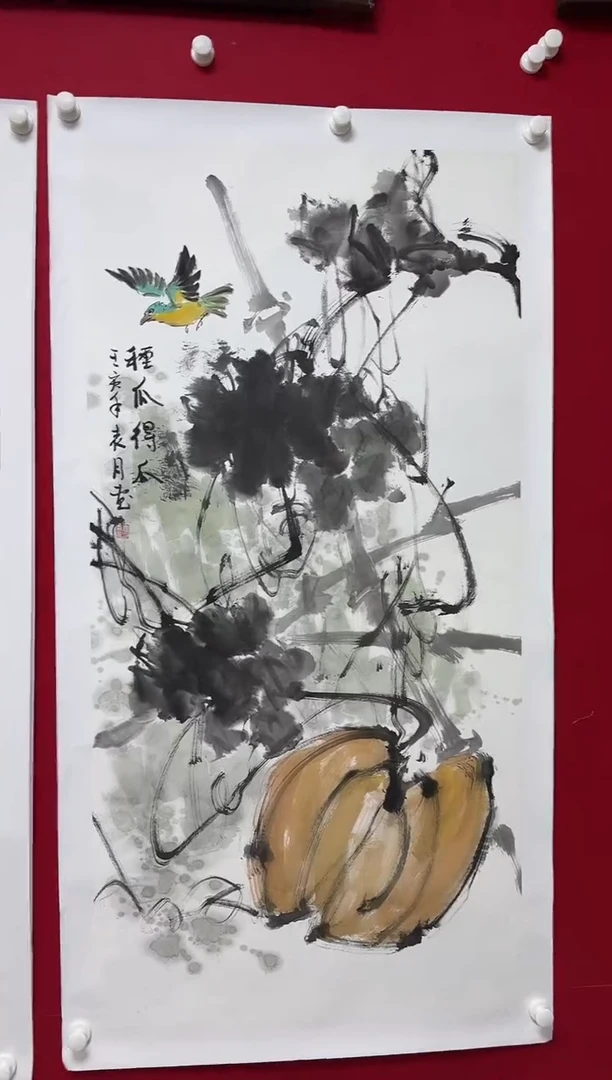 種瓜得瓜
壬寅年袁月画